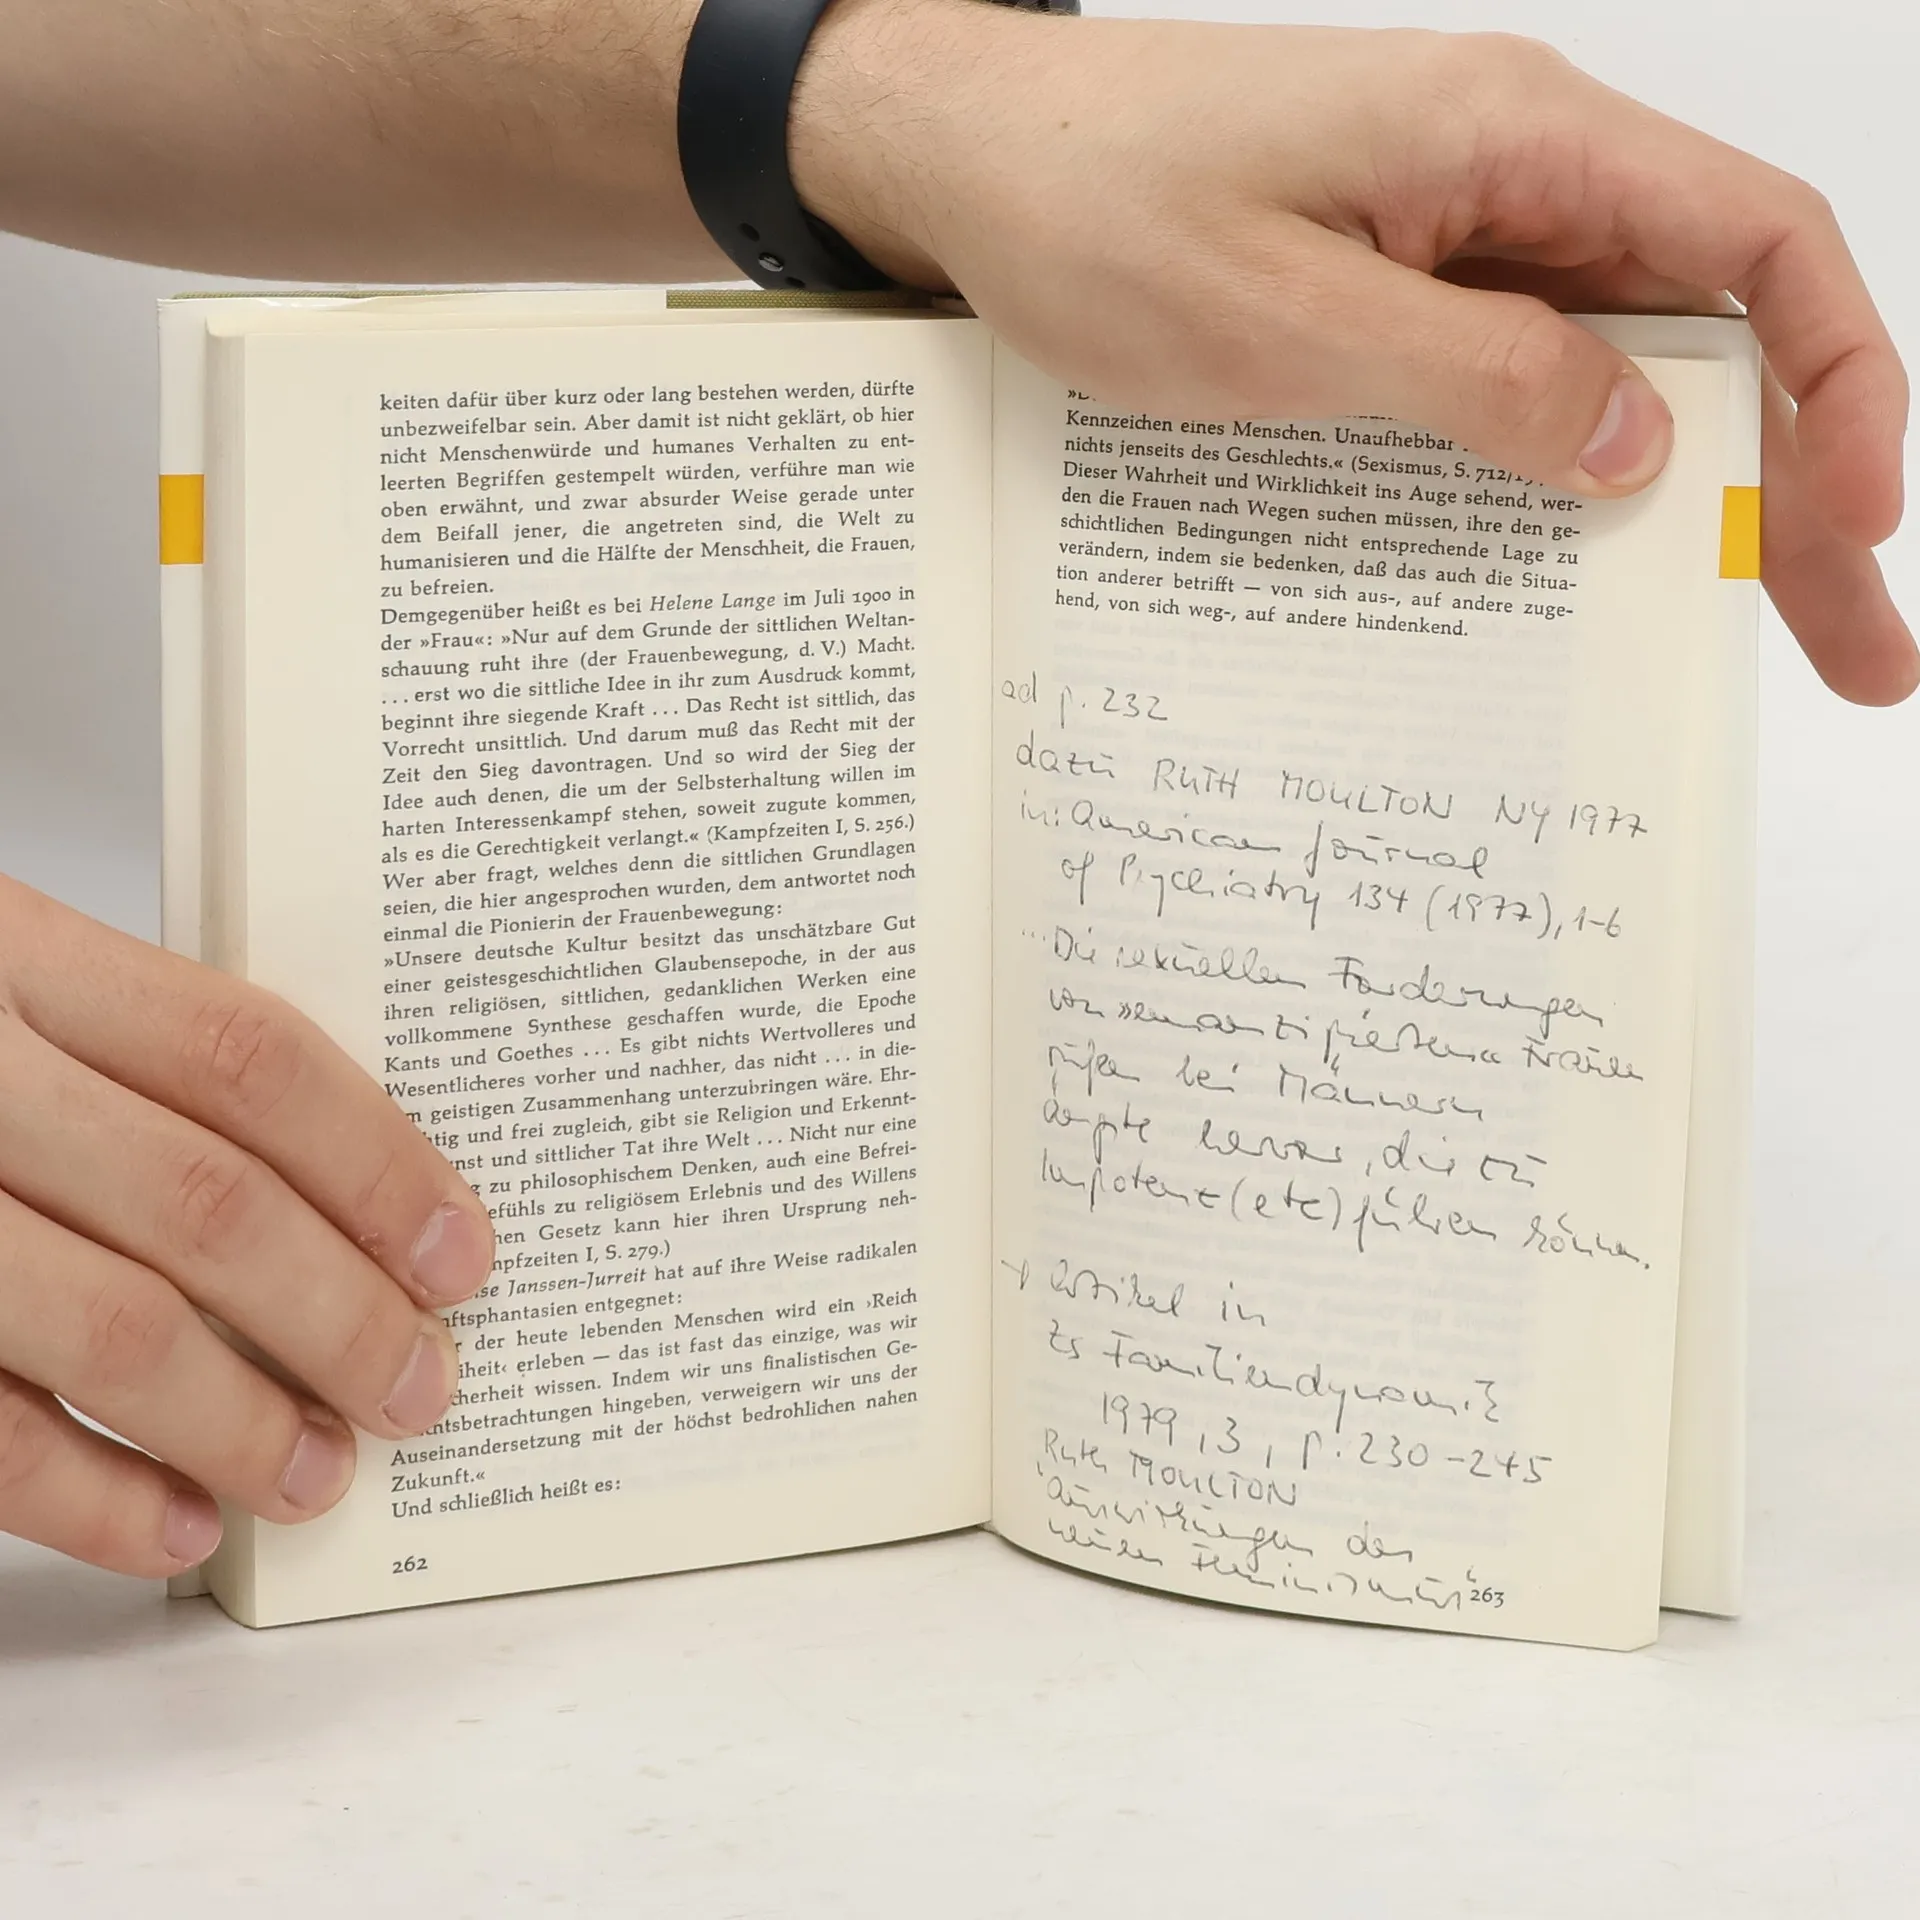 keiten dafür über kurz oder lang bestehen werden, dürfte
unbezweifelbar sein. Aber damit ist nicht geklärt, ob hier
nicht Menschenwürde und humanes Verhalten zu ent-
leerten Begriffen gestempelt würden, verführe man wie
oben erwähnt, und zwar absurder Weise gerade unter
dem Beifall jener, die angetreten sind, die Welt zu
humanisieren und die Hälfte der Menschheit, die Frauen,
zu befreien.
Demgegenüber heißt es bei Helene Lange im Juli 1900 in
der »Frau«: »Nur auf dem Grunde der sittlichen Weltan-
schauung ruht ihre (der Frauenbewegung, d. V.) Macht.
... erst wo die sittliche Idee in ihr zum Ausdruck kommt,
beginnt ihre siegende Kraft ... Das Recht ist sittlich, das
Vorrecht unsittlich. Und darum muß das Recht mit der
Zeit den Sieg davontragen. Und so wird der Sieg der
Idee auch denen, die um der Selbsterhaltung willen im
harten Interessenkampf stehen, soweit zugute kommen,
als es die Gerechtigkeit verlangt.« (Kampfzeiten I, S. 256.)
Wer aber fragt, welches denn die sittlichen Grundlagen
seien, die hier angesprochen wurden, dem antwortet noch
einmal die Pionierin der Frauenbewegung:
»Unsere deutsche Kultur besitzt das unschätzbare Gut
einer geistesgeschichtlichen Glaubensepoche, in der aus
ihren religiösen, sittlichen, gedanklichen Werken eine
vollkommene Synthese geschaffen wurde, die Epoche
Kants und Goethes ... Es gibt nichts Wertvolleres und
Wesentlicheres vorher und nachher, das nicht ... in die-
geistigen Zusammenhang unterzubringen wäre. Ehr-
und frei zugleich, gibt sie Religion und Erkennt-
und sittlicher Tat ihre Welt ... Nicht nur eine
zu philosophischem Denken, auch eine Befrei-
zu religiösem Erlebnis und des Willens
Gesetz kann hier ihren Ursprung neh-
I, S. 279.)
Janssen-Jurreit hat auf ihre Weise radikalen
entgegnet:
der heute lebenden Menschen wird ein ›Reich
erleben — das ist fast das einzige, was wir
wissen. Indem wir uns finalistischen Ge-
hingeben, verweigern wir uns der
Auseinandersetzung mit der höchst bedrohlichen nahen
Zukunft.«
Und schließlich heißt es:
262
Kennzeichen eines Menschen. Unaufhebbar
nichts jenseits des Geschlechts.« (Sexismus, S.
Dieser Wahrheit und Wirklichkeit ins Auge sehend, wer-
den die Frauen nach Wegen suchen müssen, ihre den ge-
schichtlichen Bedingungen nicht entsprechende Lage zu
verändern, indem sie bedenken, daß das auch die Situa-
tion anderer betrifft — von sich aus-, auf andere zuge-
hend, von sich weg-, auf andere hindenkend.
ad p. 232
dazu RUTH MOULTON NY 1977
in: American Journal
of Psychiatry 134 (1977), 1-6
... Die sexuellen Forderungen
von »emanzipierten« Frauen
rufen bei Männern
Ängste hervor, die zu
Impotenz (etc) führen können.
→ Artikel in
Zs Familiendynamik
1979, 3, p. 230-245
Ruth MOULTON
"Auswirkungen des
neuen Feminismus"
263